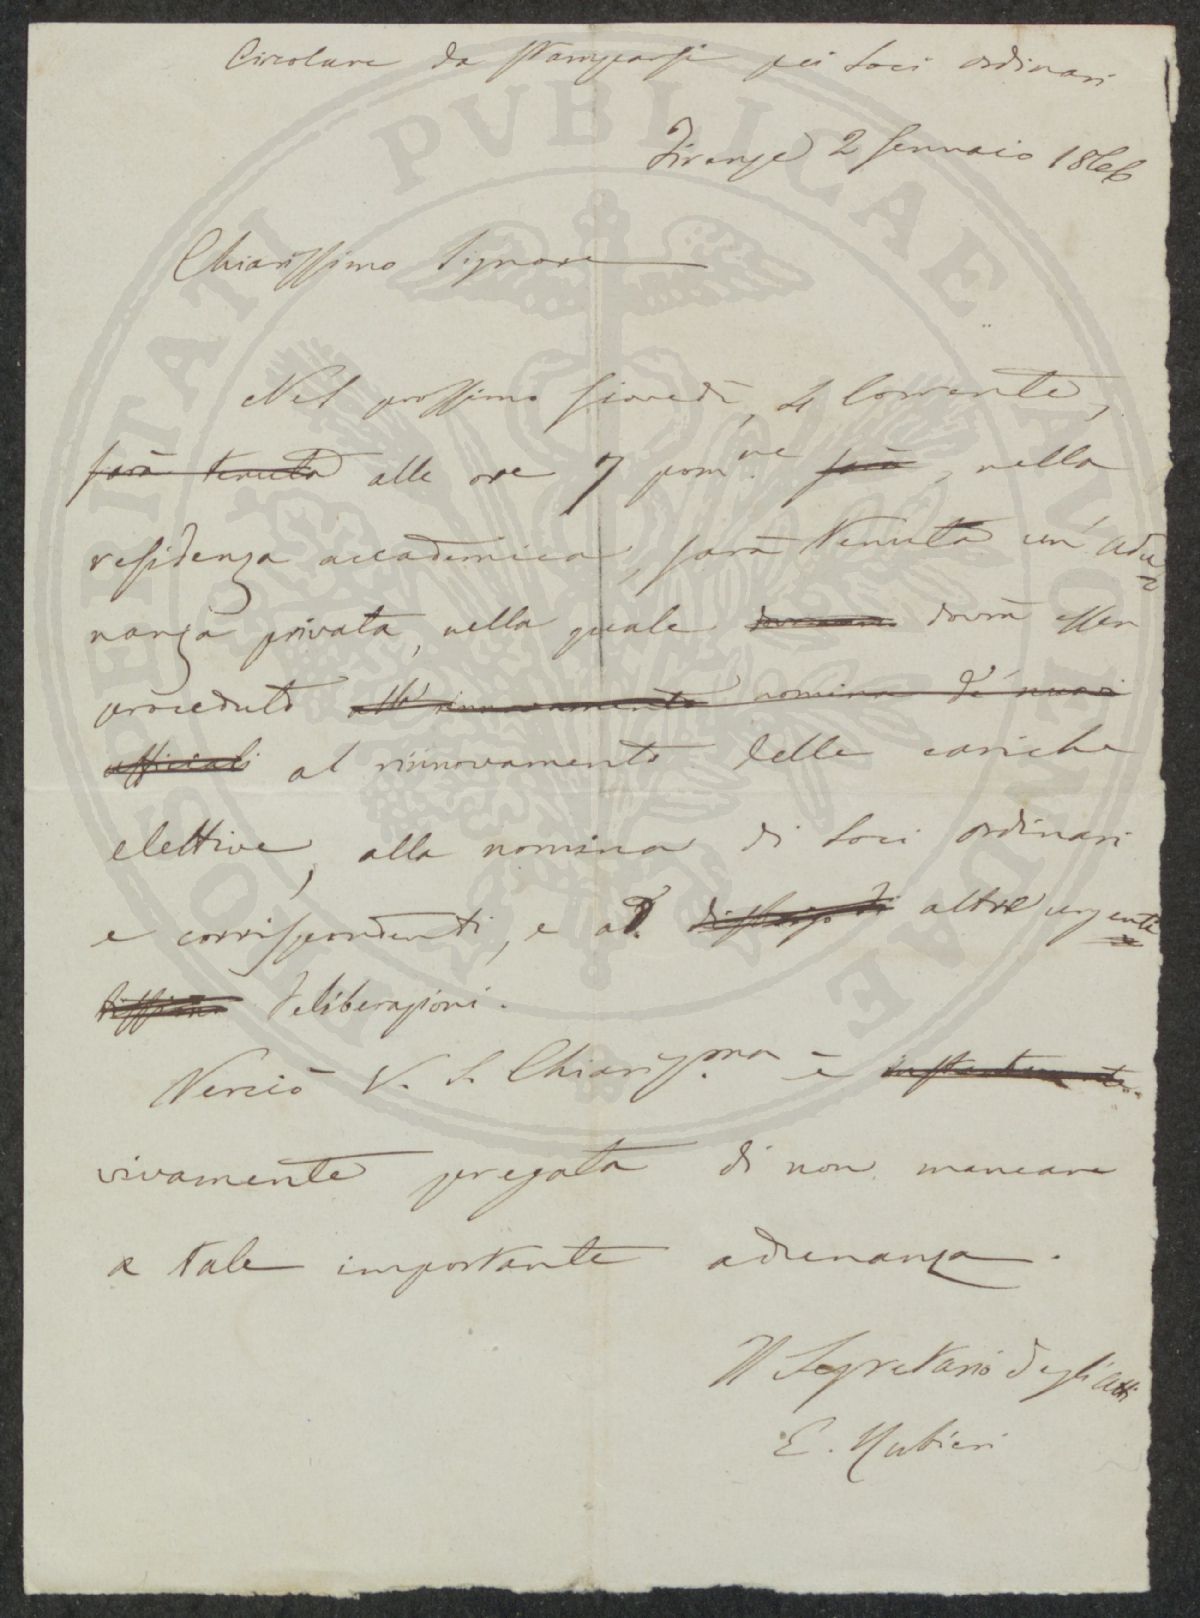 Circolare da stamparsi pei Soci ordinari
Firenze 2 Gennaio 1866
Chiarissimo Signore
Nel prossimo Giovedì, 4 Corrente,
sarà tenuta alle ore 7 pom.ne sarà, nella
residenza accademica, sarà tenuta un'adu=
nanza privata, nella quale dovrà esser
proceduto all' rinnovamento nomina de' nuovi
officiali al rinnovamento delle cariche
elettive, alla nomina di Soci ordinari
e corrispondenti, e ad altre urgenti
deliberazioni.
Perciò V. S. Chiariss.ma è
vivamente pregata di non mancare
a tale importante adunanza.
Il Segretario degli Atti
E. Rubieri
PROSPERITATI PVBLICAE AVGENDAE